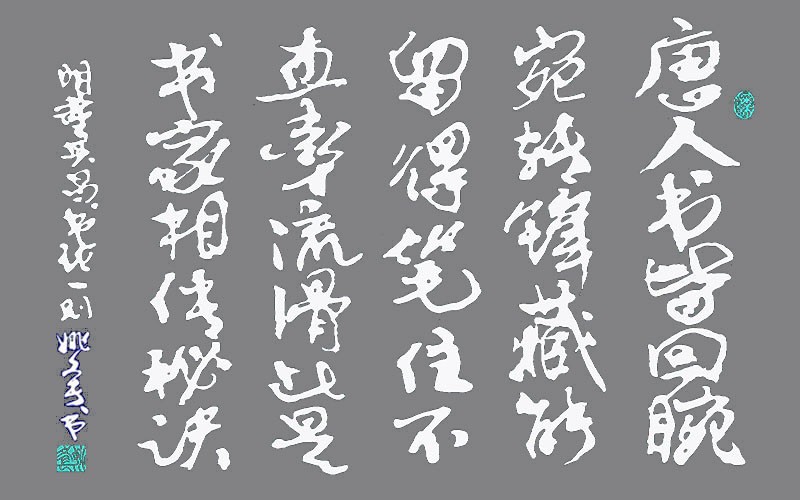 唐人书皆回腕
宛转锋藏能
留得笔住不
直率流滑此是
书家相传秘诀
明董其昌书论一则
姚文奎书